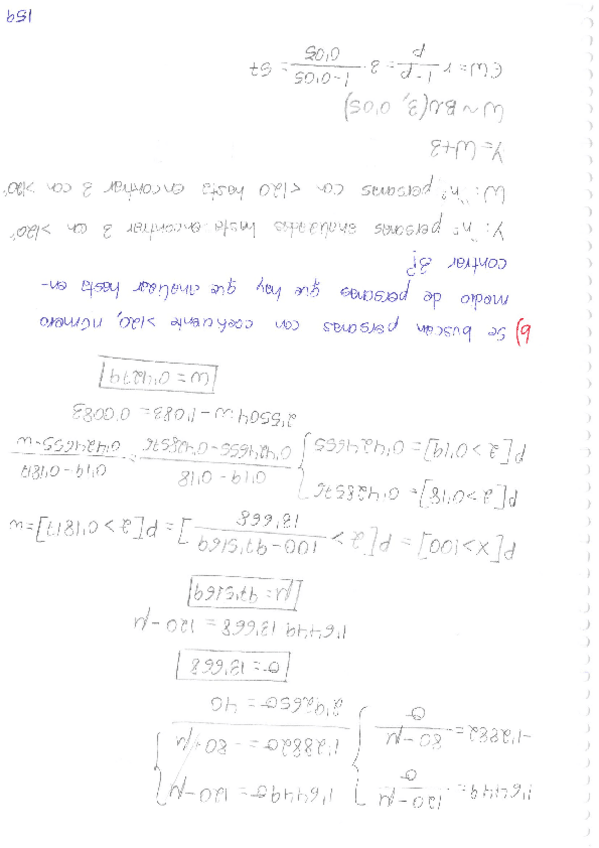 1'6449 = (120-μ)/σ } 1'6449σ = 120-μ }
-1'2882 = (80-μ)/σ } 1'2882σ = -80+μ }
2'9265σ = 40
σ = 13'668
1'6449·13'668 = 120-μ
μ = 97'5169
P[X>100] = P[Z > (100-97'5169)/13'668] = P[Z>0'1817] = w
P[Z>0'18] = 0'428576
P[Z>0'19] = 0'424655
(0'19-0'18)/(0'424655-0'428576) = (0'19-0'1817)/(0'424655-w)
2'5504·w-1'083 = 0'0083
w = 0'4279
b) Se buscan personas con coeficiente >120, número
medio de personas que hay que analizar hasta en-
contrar 3?
Y: "nº personas analizadas hasta encontrar 3 con >120"
W: "nº personas con <120 hasta encontrar 3 con >120"
Y = W+3
W ~ BN(3, 0'05)
EW = r (1-p)/p = 3 · (1-0'05)/0'05 = 57
159